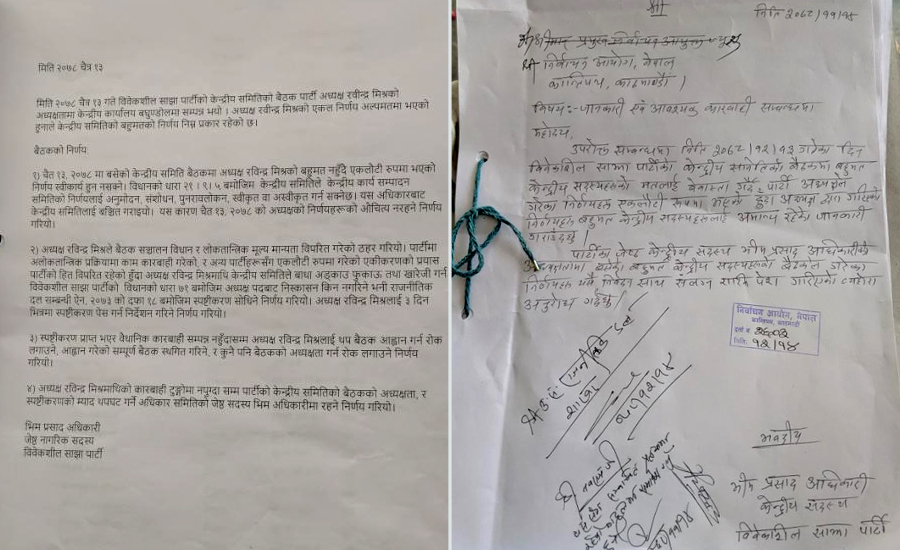 मिति २०७८ चैत्र १३
मिति २०७८ चैत्र १३ गते विवेकशील साझा पार्टीको केन्द्रीय समितिको बैठक पार्टी अध्यक्ष रवीन्द्र मिश्रको
अध्यक्षतामा केन्द्रीय कार्यालय बखुण्डोलमा सम्पन्न भयो । अध्यक्ष रवीन्द्र मिश्रको एकल निर्णय अल्पमतमा भएको
हुनाले केन्द्रीय समितिको बहुमतको निर्णय निम्न प्रकार रहेको छ।
बैठकको निर्णय:
१) चैत १३, २०७८ मा बसेको केन्द्रीय समिति बैठकमा अध्यक्ष रविन्द्र मिश्रको बहुमत नहुँदै एकलौटी रुपमा भएको
निर्णय स्वीकार्य हुन नसक्ने। विधानको धारा २९ । ९। ५ बमोजिम केन्द्रीय समितिले केन्द्रीय कार्य सम्पादन
समितिको निर्णयलाई अनुमोदन, संशोधन, पुनरावलोकन, स्वीकृत वा अस्वीकृत गर्न सक्नेछ। यस अधिकारबाट
केन्द्रीय समितिलाई बञ्चित गराइयो। यस कारण चैत १३, २०७८ को अध्यक्षको निर्णयहरूको औचित्य नरहने निर्णय
गरियो।
२) अध्यक्ष रविन्द्र मिश्रले बैठक सञ्चालन विधान र लोकतान्त्रिक मूल्य मान्यता विपरित गरेको ठहर गरियो। पार्टीमा
अलोकतान्त्रिक प्रक्रियामा काम कारबाही गरेको, र अन्य पार्टीहरूसँग एकलौटी रुपमा गरेको एकीकरणको प्रयास
पार्टीको हित विपरित रहेको हुँदा अध्यक्ष रविन्द्र मिश्रमाथि केन्द्रीय समितिले बाधा अड्काउ फुकाऊ तथा खारेजी गर्न
विवेकशील साझा पार्टीको, विधानको धारा ७१ बमोजिम अध्यक्ष पदबाट निस्कासन किन नगरिने भनी राजनीतिक
दल सम्बन्धी ऐन, २०७३ को दफा १८ बमोजिम स्पष्टीकरण सोधिने निर्णय गरियो। अध्यक्ष रविन्द्र मिश्रलाई ३ दिन
भित्रमा स्पष्टीकरण पेस गर्न निर्देशन गरिने निर्णय गरियो।
३) स्पष्टीकरण प्राप्त भएर वैधानिक कारबाही सम्पन्न नहुँदासम्म अध्यक्ष रविन्द्र मिश्रलाई थप बैठक आह्वान गर्न रोक
लगाउने, आह्वान गरेको सम्पूर्ण बैठक स्थगित गरिने, र कुनै पनि बैठकको अध्यक्षता गर्न रोक लगाउने निर्णय
गरियो।
४) अध्यक्ष रविन्द्र मिश्रमाथिको कारबाही टुङ्गोमा नपुग्दा सम्म पार्टीको केन्द्रीय समितिको बैठकको अध्यक्षता, र
स्पष्टीकरणको म्याद थपघट गर्ने अधिकार समितिको जेष्ठ सदस्य भिम अधिकारीमा रहने निर्णय गरियो।
भिम प्रसाद अधिकारी
जेष्ठ नागरिक सदस्य
विवेकशील साझा पार्टी
मिति २०७८/१२/१४
श्री निर्वाचन आयोग, नेपाल
कान्तिपथ, काठमाण्डौ ।
विषय:- जानकारी एवं आवश्यक कारवाही सम्बन्धमा
महोदय,
उपरोक्त सम्बन्धमा मिति २०७८/१२/१३ गतेका दिन
विवेकशिल साझा पार्टीको केन्द्रीय समितिको बैठकमा बहुमत
केन्द्रीय सदस्यहरूको मतलाई बेवास्ता गर्दै पार्टी अध्यक्षले
गरेका निर्णयहरू एकलौटी रूपमा भएको हुँदा
निर्णयहरू बहुमत केन्द्रीय सदस्यहरूलाई अमान्य रहेको जानकारी
गराउँदछु ।
पार्टीका जेष्ठ केन्द्रीय सदस्य भीम प्रसाद अधिकारीको
अध्यक्षतामा बसेको बहुमत केन्द्रीय सदस्यहरूको बैठकले गरेका
निर्णयहरू यसै निवेदन साथ संलग्न राखि पेश गरिएको व्यहोरा
अनुरोध गर्दछु ।
निर्वाचन आयोग, नेपाल
कान्तिपथ, काठमाडौं
१२/१४
भवदीय
भीम प्रसाद अधिकारी
केन्द्रीय सदस्य
विवेकशील साझा पार्टी